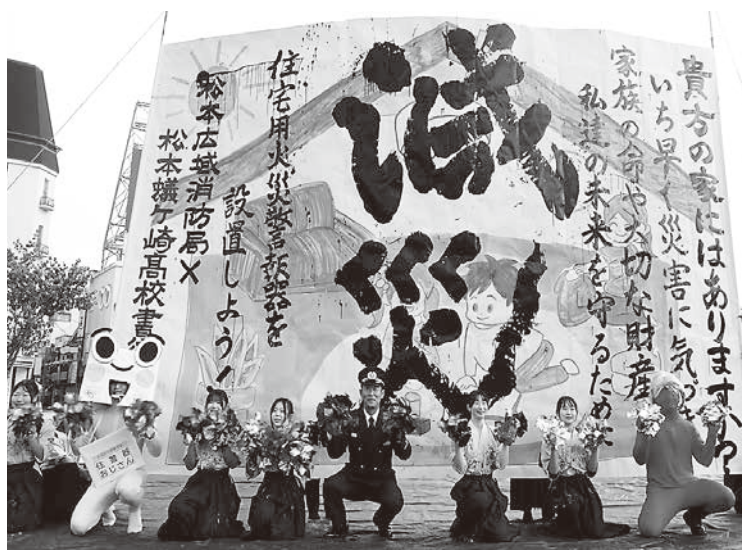 貴方の家にはありますか?
いち早く災害に気づき
家族の命や大切な財産
私達の未来を守るために
減災
住宅用火災警報器を
設置しよう!
松本広域消防局×
松本蟻ケ崎高校書
住警器
おじさん